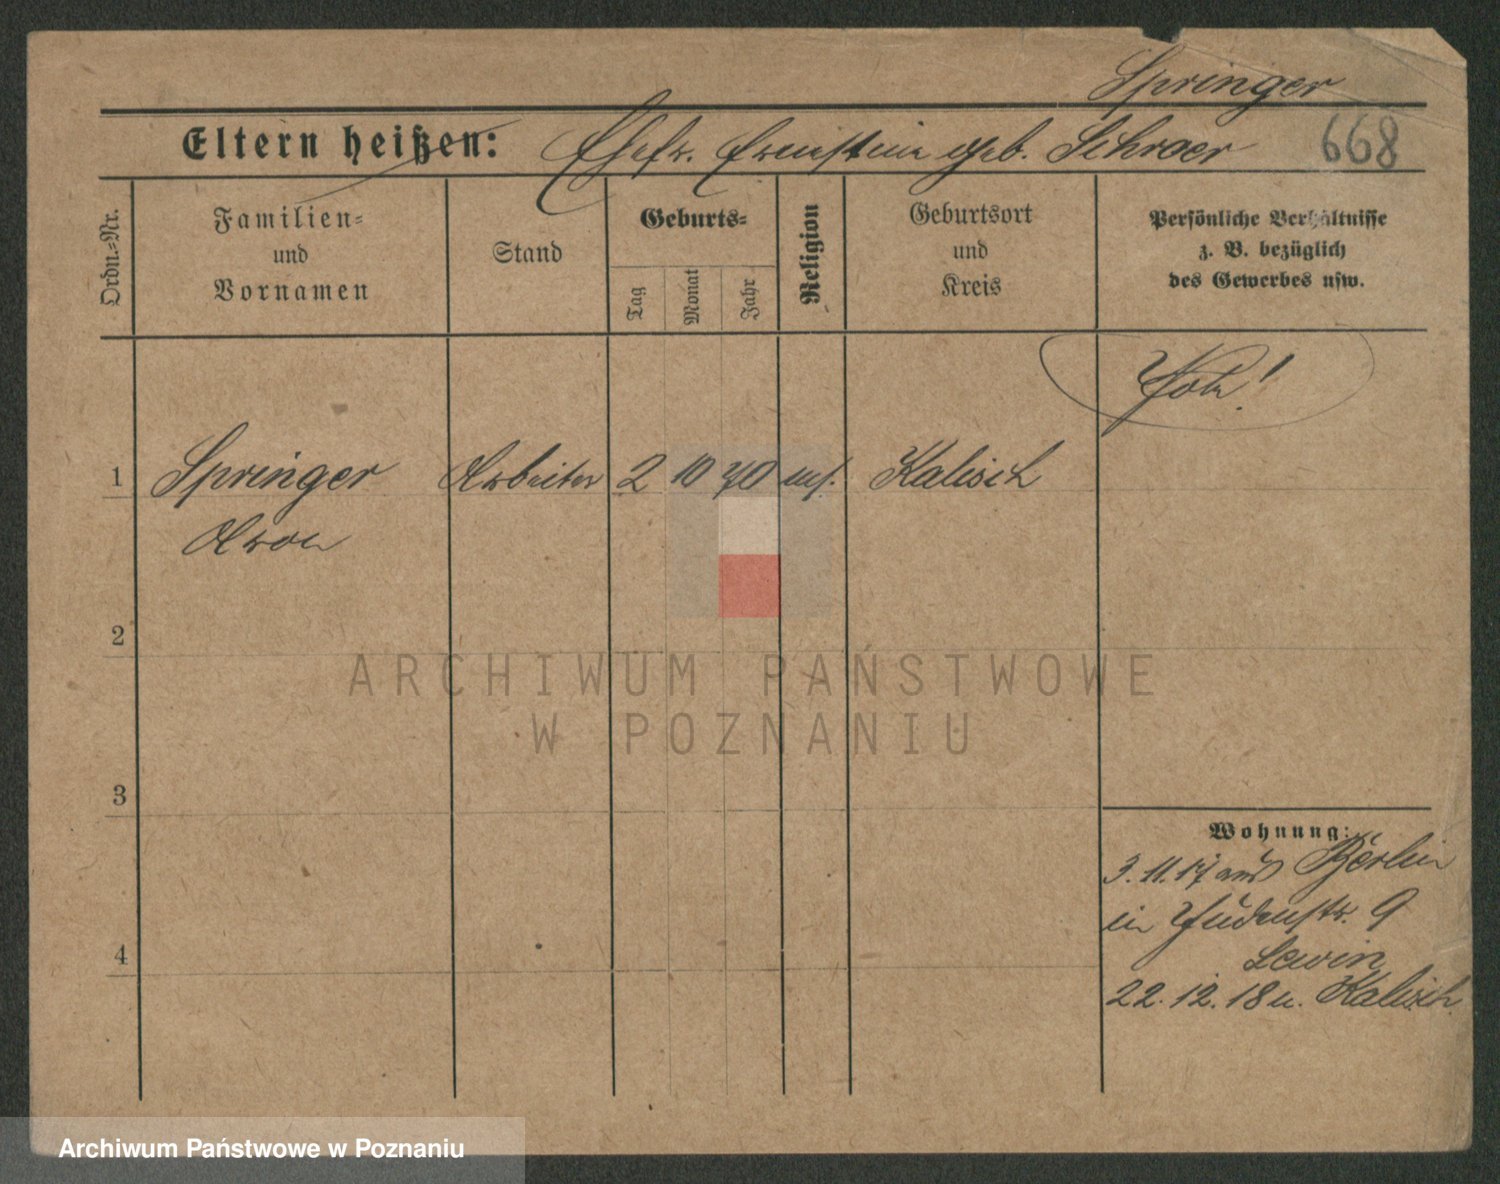 Springer
Eltern heißen: Ehefr. Ernestine geb. Schroer 668
Ordn.-Nr.
Familien-
und
Vornamen
Stand
Geburts-
Tag
Monat
Jahr
Religion
Geburtsort
und
Kreis
Persönliche Verhältnisse
z. B. bezüglich
des Gewerbes usw.
1 Springer Arbeiter 2 10 70 Kalisch
Aron
2
3
4
ARCHIWUM PAŃSTWOWE
W POZNANIU
Wohnung:
3. 11. 17 aus Berlin
in Judenstr. 9
Lewin
22. 12. 18 n. Kalisch
Archiwum Państwowe w Poznaniu